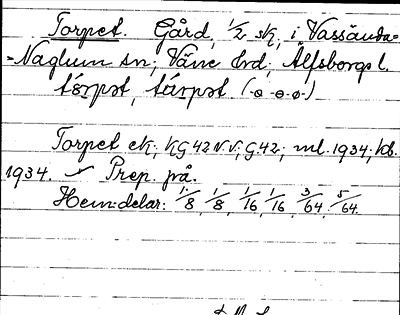 Torpet. Gård, 1/2 sk, i Vassända=
=Naglum sn; Väne hrd; Älfsborgs l.
tórpət, tárpət. (-ɵ-ɵ-ɵ-)
Torpet ek; KG 42 NV; G42; ml. 1934; kb.
1934. Prep. på.
Hem:delar: 1/8, 1/8, 1/16, 1/16, 3/64, 5/64.